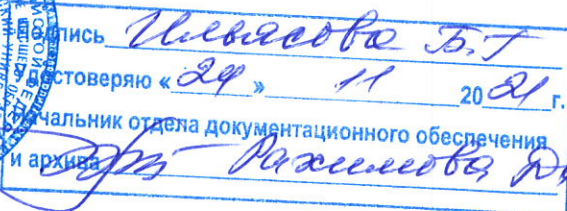 Подпись Ильясова Б.Г
Удостоверяю « 24 » 11 2021 г.
Начальник отдела документационного обеспечения
и архива Рахимова